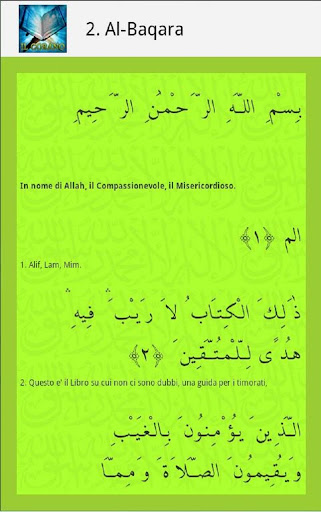 2. Al-Baqara
بِسْمِ اللَّهِ الرَّحْمَٰنِ الرَّحِيمِ
In nome di Allah, il Compassionevole, il Misericordioso.
الم ﴿١﴾
1. Alif, Lam, Mim.
ذَٰلِكَ الْكِتَابُ لَا رَيْبَ ۛ فِيهِ ۛ
هُدًى لِّلْمُتَّقِينَ ﴿٢﴾
2. Questo e' il Libro su cui non ci sono dubbi, una guida per i timorati,
الَّذِينَ يُؤْمِنُونَ بِالْغَيْبِ
وَيُقِيمُونَ الصَّلَاةَ وَمِمَّا